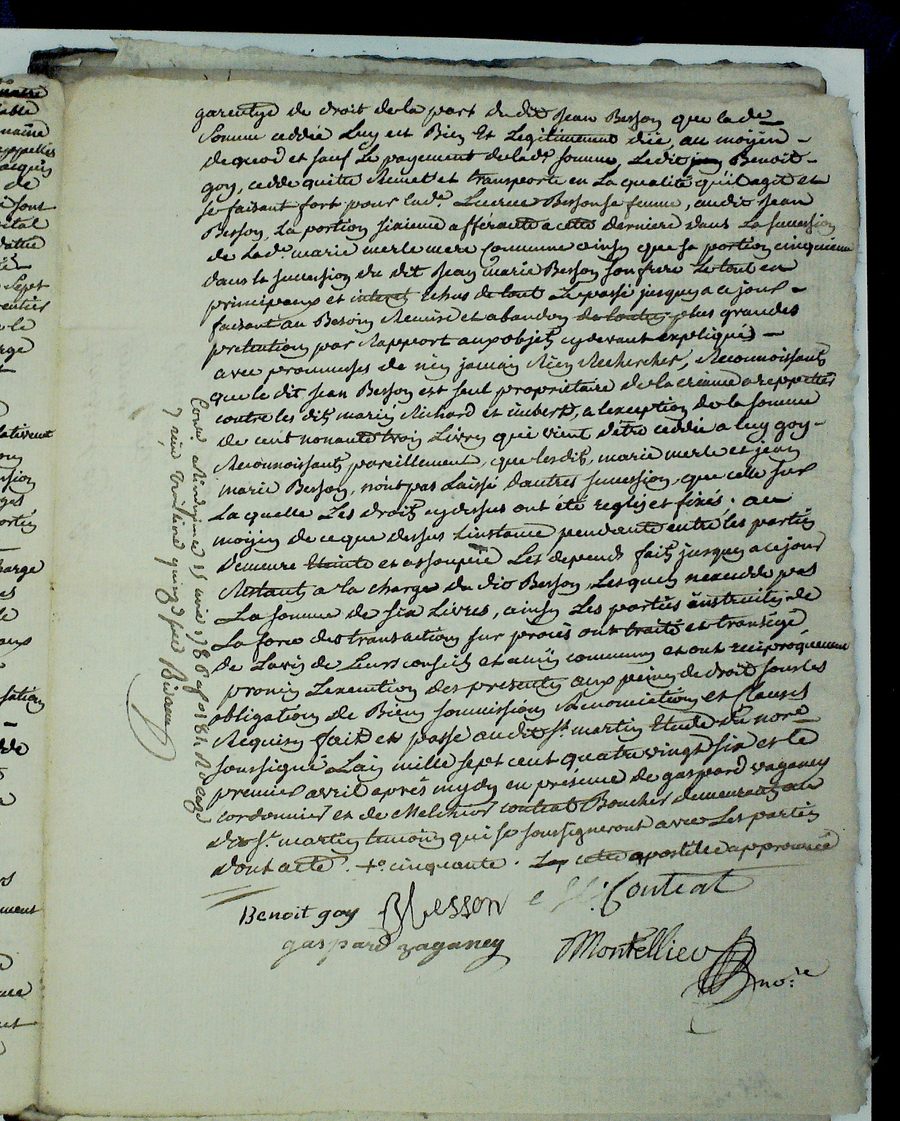 garentye de droit de la part du dit Jean Besson que lade
Somme ceddée Luy est Bien Et Legitimement düe, au moyen
dequoy et sauf Le payement de lade. somme, Ledit Benoit
goy, cedde quitte Remet et transporte en La qualité qu'il agit et
se faisant fort pour lade. Besson sa femme, audit Jean
Besson, La portion sixieme afférante a cette derniere dans La succession
de Lade. marie merle mere Commune ainsy que sa portion cinquieme
dans la succession du dit Jean marie Besson son frere Le tout en
principeaux et interet Echus de tout Le passé jusques a ce jour
faisant au Besoin Remise et abandon de toutes plus grandes
pretentions par Rapport aux objets cydevant expliqués
avec promesses de n'en jamais Rien Rechercher, Reconnoissants
que le dit Jean Besson est seul propriétaire de la créance a reppetter
contre les dits mariés Richard et imbert, a l'exception de la somme
de cent nonante trois Livres qui vient d'être ceddée a luy goy
Reconnoissants pareillement, que lesdits marie merle et jean
marie Besson, n'ont pas Laissé d'autres succession, que celle sur
Laquelle Les droits cydessus ont été reglés et fixés; au
moyen de ce que dessus L'instance pendante entre les parties
demeure Eteinte et assoupie Les depends faits jusques a ce jour
Restants a la charge du dit Besson, Lesquels n'excedde pas
La somme de six Livres, ainsy Les parties instruites de
La force des transactions sur procés ont traité et transigé
de L'avis de Leurs conseils et amis communs et ont reciproquement
promis L'execution des presentes aux peines de droit sous les
obligations de Biens soumissions Renonciations et Clauses
Requises fait et passé audit St. martin Etude du nore.
soussigné L'an mille sept cent quatre vingt six et le
premier avril après mydy en présence de gaspard vaganey
cordonnier et de Melchior contrat Boucher demeurants au
dit St. martin temoins qui se soussigneront avec Les parties
dont acte. fo. cinquante. cette apostille approuvée
Benoit goy Besson Contrat
gaspard vaganey Montellier no.re
Conté 15 1786
quinze sols